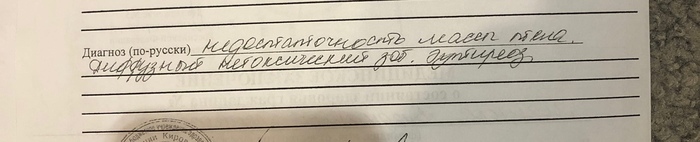 Диагноз (по-русски) недостаточность массы тела.
Диффузный нетоксический зоб. Эутиреоз